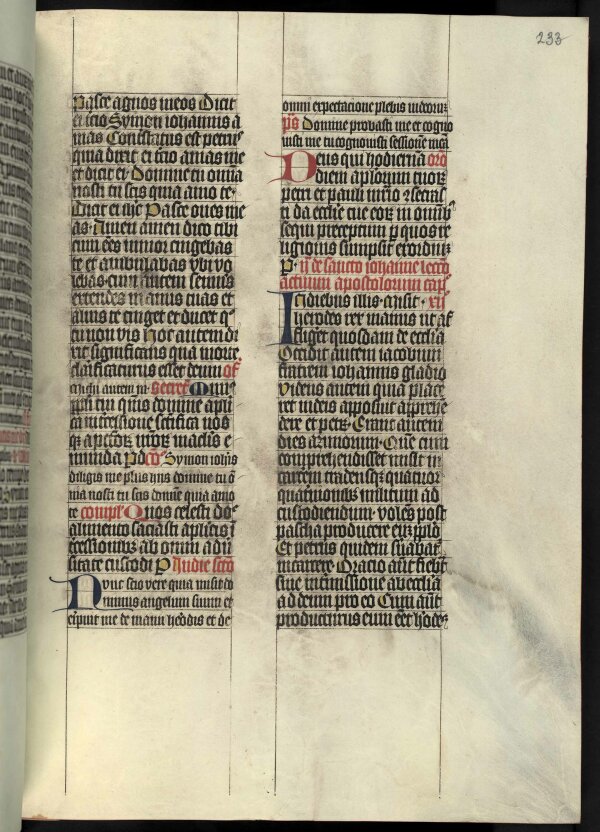 233
Pasce agnos meos Dicit
ei tercio Symon iohannis a
mas Contristatus est petrus
quia dixit ei tercio amas me
et dicit ei Domine tu omnia
nosti tu scis quia amo te
Dicit ei Pasce oues me
as Amen amen dico tibi
cum esses iunior cingebas
te et ambulabas vbi vo
lebas cum autem senueris
extendes manus tuas et
alius te cinget et ducet q̄
tu non vis Hoc autem di
xit significans qua morte
clarificaturus esset deum of
michi autem secret Mune
domine
intercessione sctifica nos
qz maclis e
munda Symon iohis
diligis me plus hiis domine tu o
nia nosti tu scis domine quia amo
te compl Quos celesti do
alimento saciasti aplicis i
tercessionibz ab omni adu
sitate custodi P In die scto
Nunc scio vere quia misit do
minus angelum suum et
eripuit me de manu herodis et de
omni expectacione plebis iudeorum
ps Domine probasti me et cogno
uisti me tu cognouisti sessionem mea
Deus qui hodiernā oro
diem aplorum tuorz
petri et pauli mrio 9secras
ti da ecclie tue eorz in omibz
sequi preceptum p quos re
ligionis sumpsit exordiuz
de sancto iohanne lectio
actuum apostolorum cap
In diebus illis misit xii
herodes rex manus ut af
fligeret quosdam de ecclia
Occidit autem iacobum
fratrem iohannis gladio
Videns autem quia place
ret iudeis apposuit apprehe
dere et petr Erant autem
dies azimorum Que cum
comprehendisset misit in
carcerem tradens quatuor
quaternionibz militum ad
custodiendum volens post
pascha producere eum pplo
Et petrus quidem suabat
in carcere Oracio aūt fiebat
sine intmissione ab ecclia
ad deum pro eo Cum aūt
producturus eum eet hode